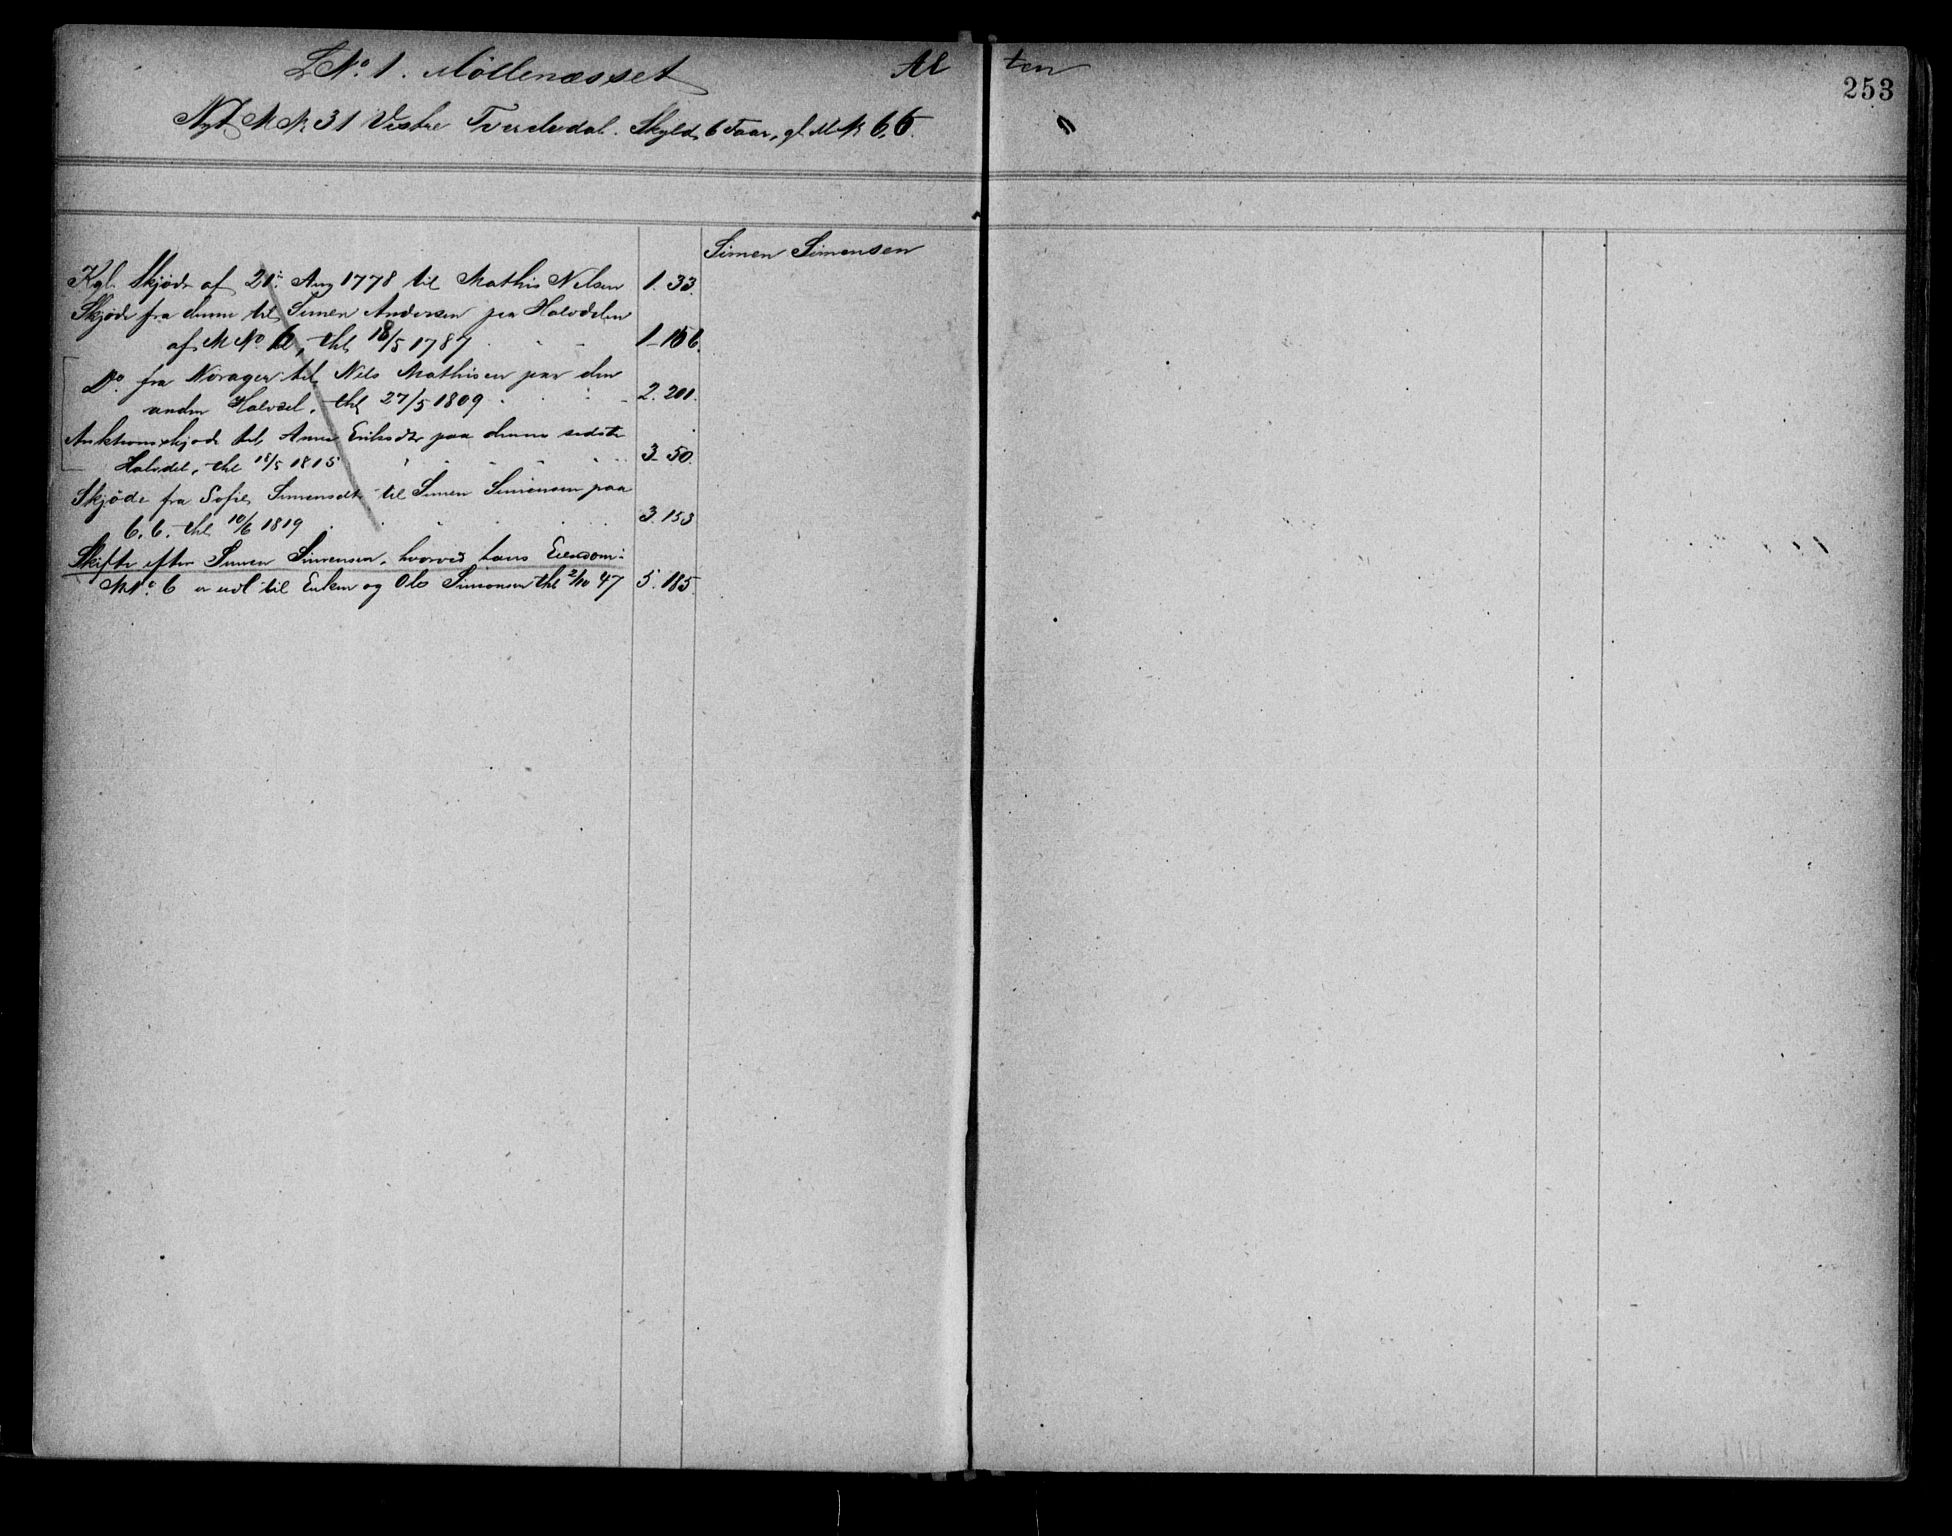 LNo. 1. Möllenæsset Al ten
253
Nyt MNr 31 Vestre Tverdedal. Skyld 6 Faar, gl. MNr 6,6.
Simen Simensen
Kgl. Skjöde af 21: Aug 1778 til Mathis Nelsen 1. 33.
Skjöde fra denne til Simen Andersen paa Halvdelen
af MNo. 6, thl 18/5 1787 1-156.
Do. fra Norager til Nils Mathisen paa den
anden Halvdel, thl 27/5 1809 2. 201.
Auktionsskjöde til Anne Eriksdtr paa denne sidste
Halvdel, thl 18/5 1815 3-50.
Skjöde fra Sofie Simensdtr til Simen Simensen paa
6. 6. thl 10/6 1819 3. 153
Skifte efter Simen Simensen, hvorved hans Eiendom:
MNo. 6 er udl til Enken og Ole Simensen thl 2/10 47 5. 185.